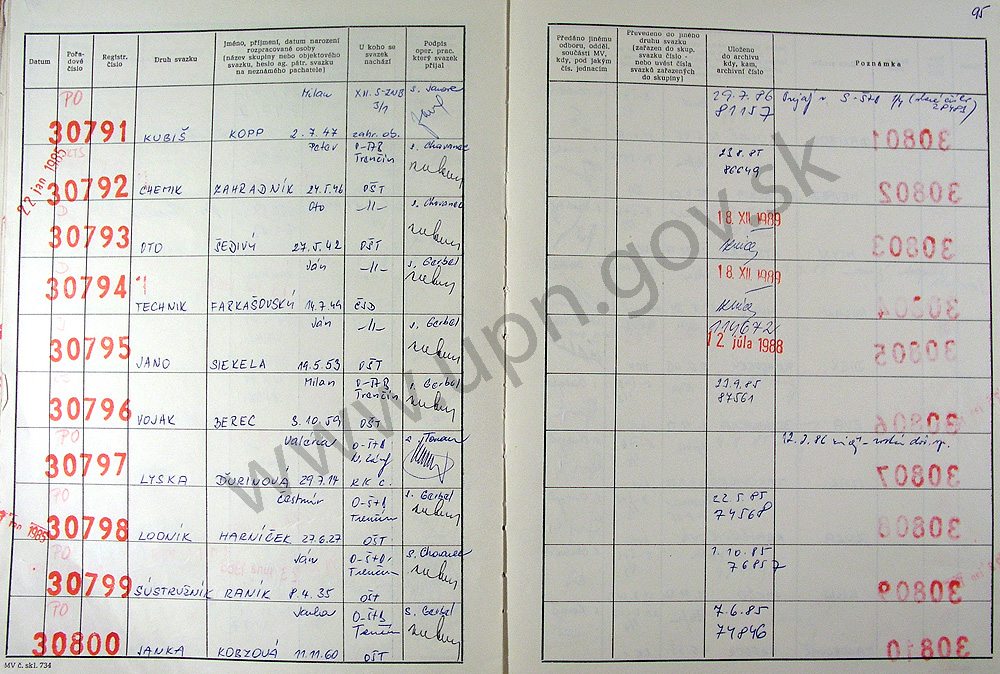 95
Datum
Pořa-
dové
číslo
Registr.
číslo
Druh svazku
Jméno, příjmení, datum narození
rozpracované osoby
(název skupiny nebo objektového
svazku, heslo ag. pátr. svazku
na neznámého pachatele)
U koho se
svazek
nachází
Podpis
oper. prac.
který svazek
přijal
Předáno jinému
odboru, odděl.
součásti MV,
kdy, pod jakým
čís. jednacím
Převedeno do jiného
druhu svazku
(zařazen do skup.
svazku číslo -
nebo uvést čísla
svazků zařazených
do skupiny)
Uloženo
do archivu
kdy, kam,
archivní číslo
Poznámka
PO
Milan
XII. S-ZNB
3/1
29.7.86
81157
30791
KUBIŠ KOPP 2.7.47 zahr. ob.
22 jan 1985
Peter
Trenčín
s. Chovanec
30792
CHEMIK ZAHRADNÍK 24.5.46 OŠT
86649
Oto
-ll-
s. Chovanec
18. XII 1989
30793
OTO ŠEDIVÝ 27.5.42 OŠT
Ján
-ll-
s. Gerbel
18. XII 1989
30794
TECHNIK FARKAŠOVSKÝ 14.7.49 ČSD
Ján
-ll-
s. Gerbel
114672
12. júla 1988
30795
JANO SIEKELA 19.5.53 OŠT
Milan
Trenčín
s. Gerbel
23.9.85
87561
30796
VOJAK BEREC 3.10.59 OŠT
PO
Valéria
O-ŠtB
30797
LYSKA ĎURINOVÁ 29.7.14
PO
Čestmír
O-ŠtB
Trenčín
s. Gerbel
22.5.85
74568
jan 1985
30798
LODNÍK HARNÍČEK 27.6.27 OŠT
PO
Ján
O-ŠtB
Trenčín
s. Chovanec
1.10.85
76857
30799
SÚSTRUŽNÍK RANÍK 8.4.35 OŠT
PO
O-ŠtB
Trenčín
s. Gerbel
7.6.85
74846
30800
JANKA KOBZOVÁ 11.11.60 OŠT
MV č. skl. 734
www.upn.gov.sk